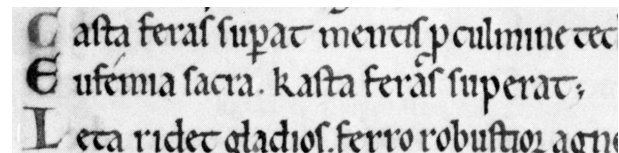 Casta feras suꝑat mentis ꝑ culmine tecl
Eufemia sacra. kasta feras superat;
Leta ridet gladios. ferro robustioꝛ agne